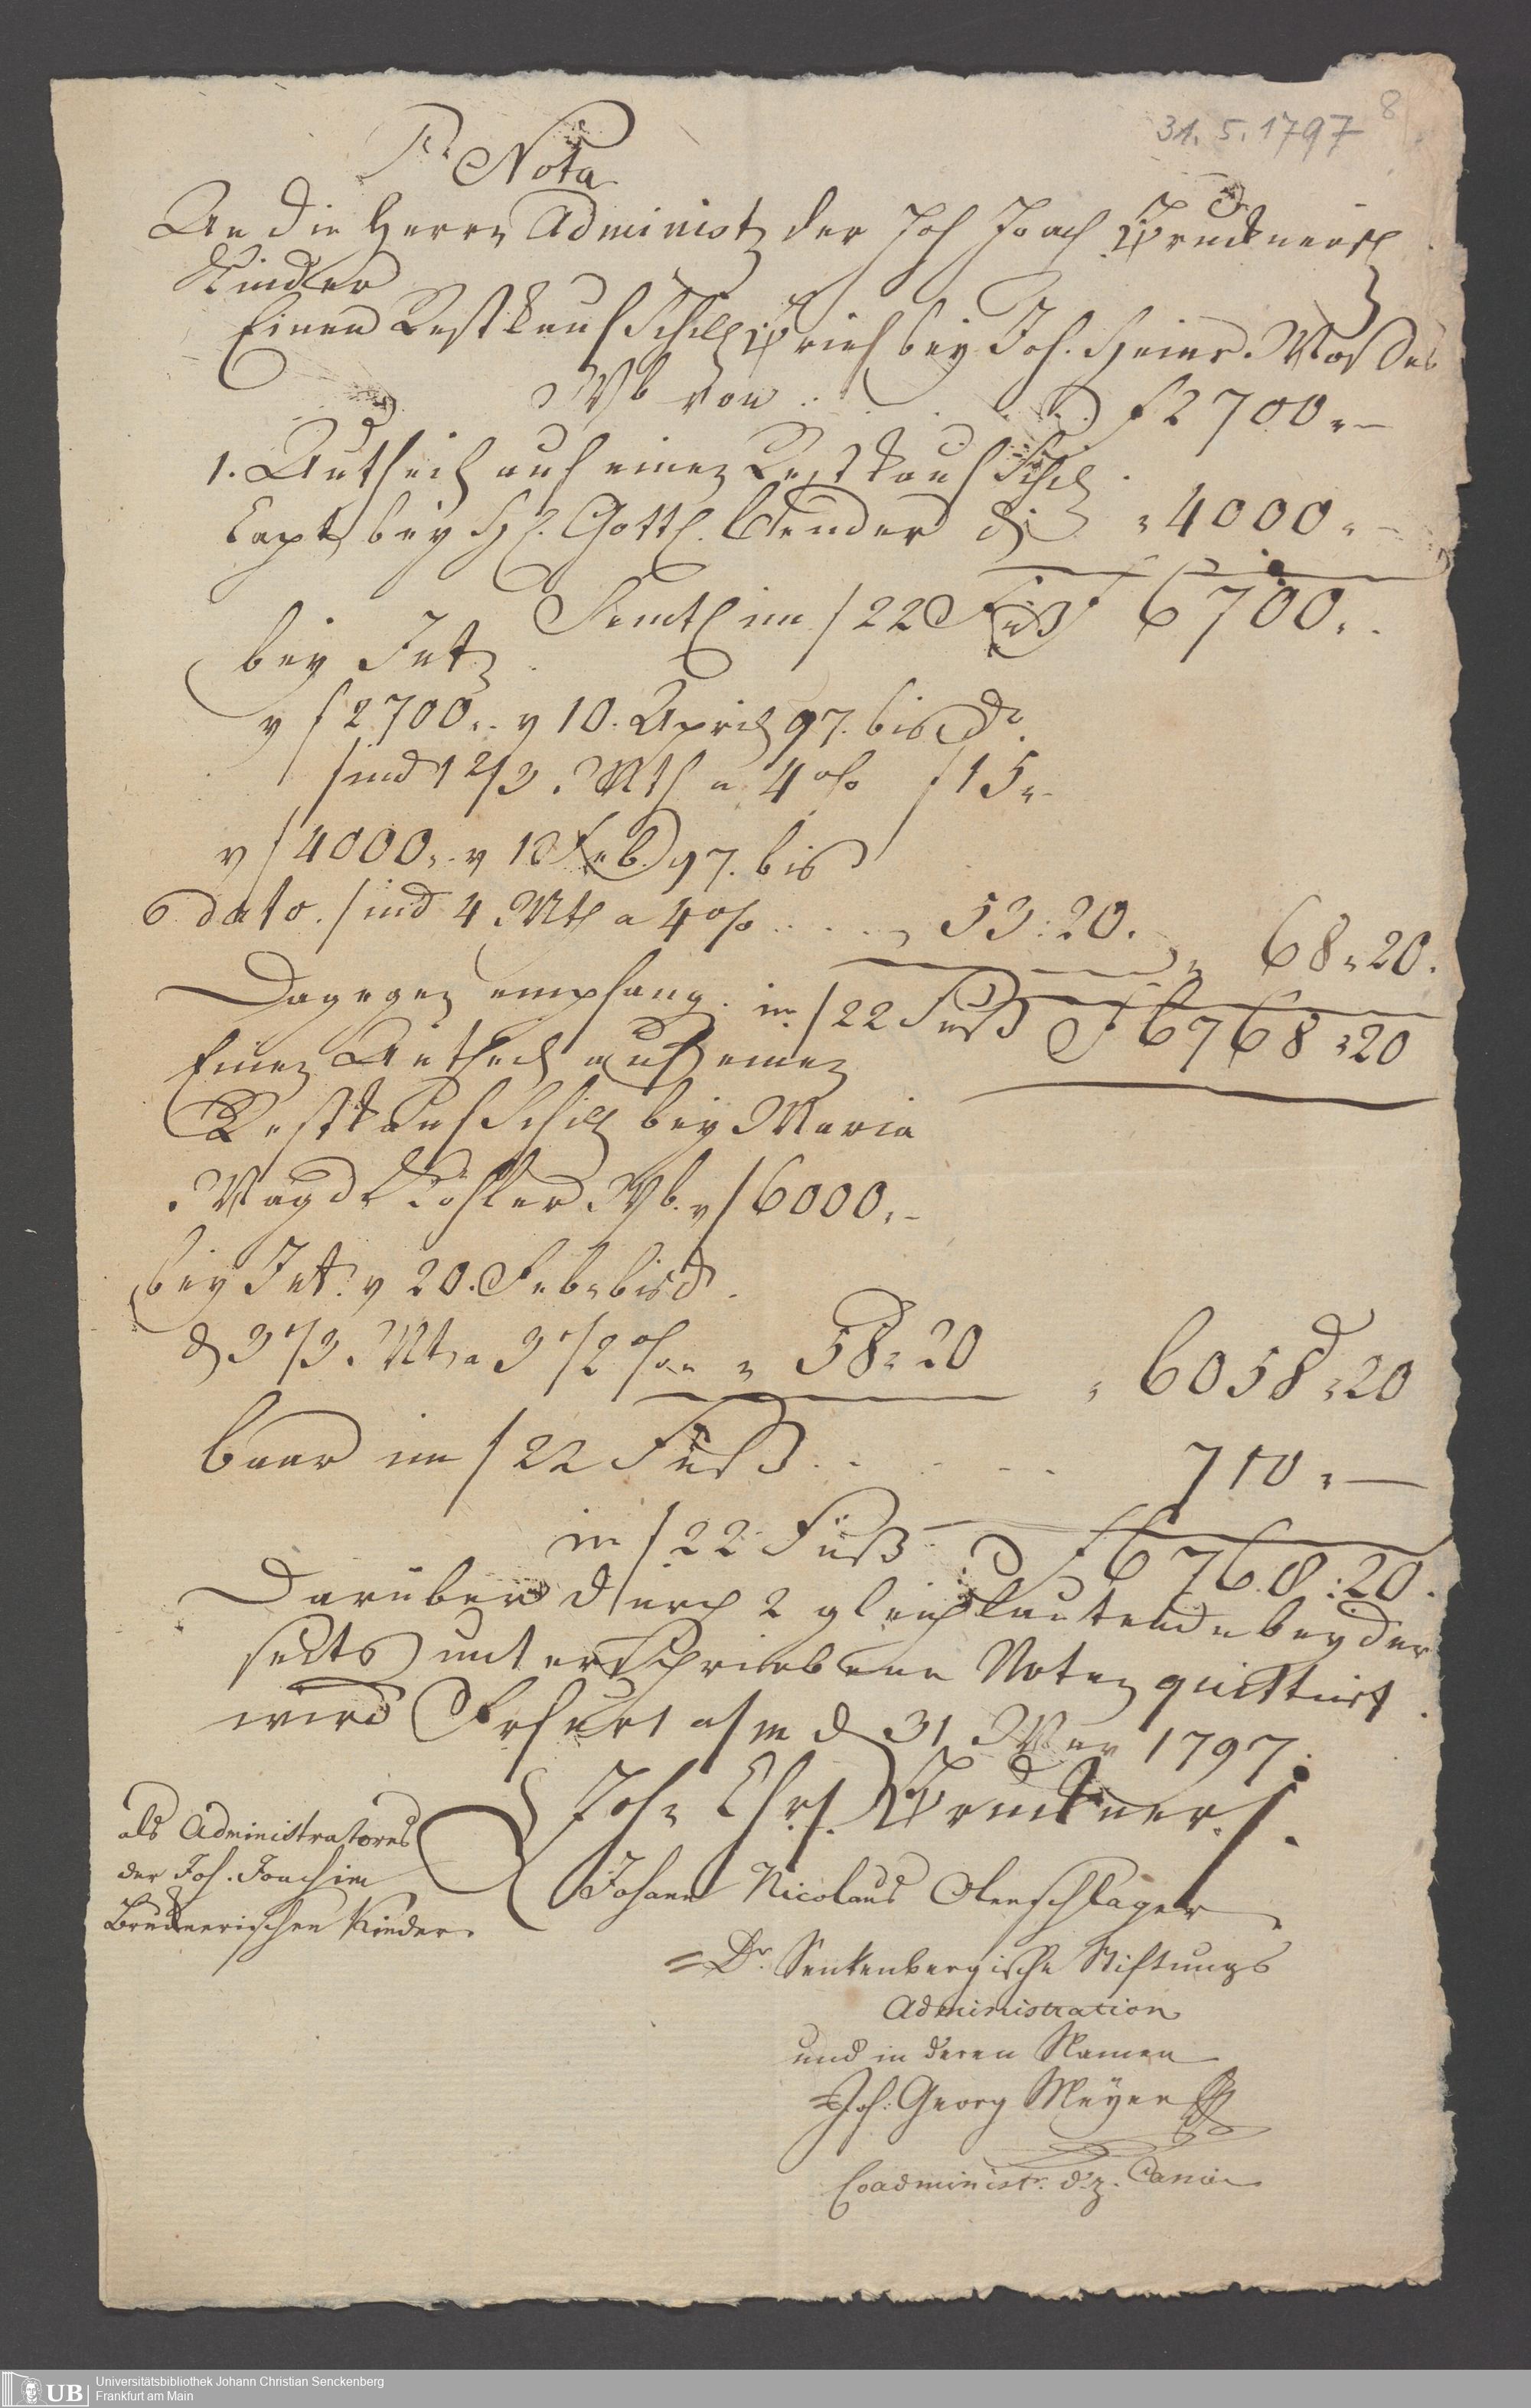 31. 5. 1797
8
Pr Nota
An die Herrn Administ der Joh Joach Prucknerisch
Kinder
Einen Restkaufschill Brief bey Joh. Heinr.
Wb von . . . . . f 2700 „ —
1. Antheil auf einen Restkaufschill
Capt bey H. Gottl. Bender „ 4000 „ —
Samtl im f 22 Fuß f 6700 „ .
bey Int
v f 2700 „ v 10. April 97. bis do.
sind 1 2/3 . Mth a 4 o/o f 15 „ -
v f 4000 „ v 10 Feb. 97. bis
dato. sind 4 Mth a 4 o/o . . . . „ 53:20. „ 68 „ 20.
Dagegen empfang. im f 22 Fuß f 6768 „ 20
Einen Antheil auf einen
Restkaufschill bey Maria
Magd. Köhler Wb. v f 6000 „ -
bey Int. v 20. Feb. bis d.
d 3 1/3 . Mt a 3 1/2 o/o „ 58 „ 20 „ 6058 „ 20
baar im f 22 Fuß . . . . . 710 „ —
im f 22 Fuß f 6768:20.
Darüber durch 2 gleichlautende beyder
seits unterschriebene Noten quittirt
wird Frfurt a/m d 31 May 1797.
Joh. Chr. Pruckner.
als Administratores
der Joh. Joachim
Brucknerischen Kinder.
Johann Nicolaus Olenschlager
Dr. Senkenbergische Stiftungs
Administration
und in deren Namen
Joh: Georg Meyer
Coadministr. d. z.
Universitätsbibliothek Johann Christian Senckenberg
UB Frankfurt am Main